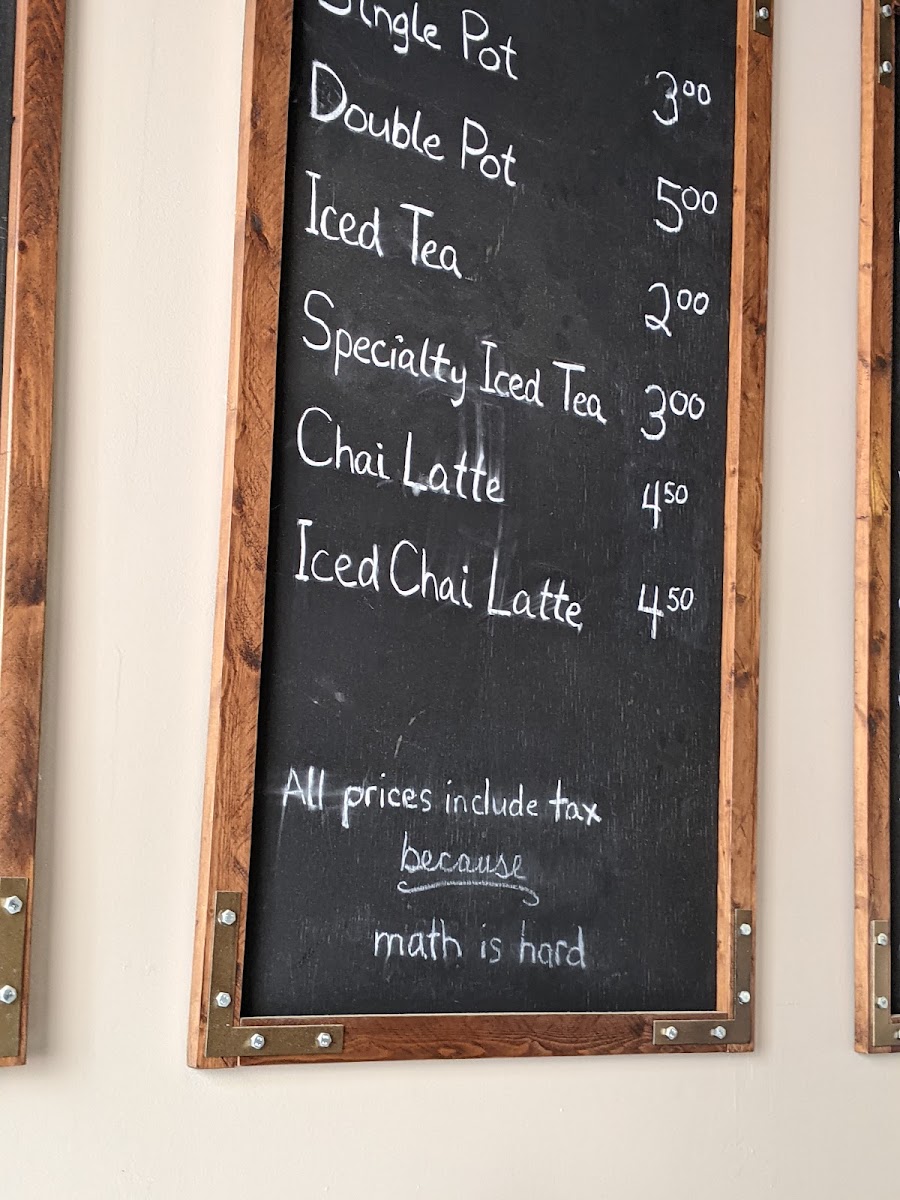 Single Pot 3.00
Double Pot 5.00
Iced Tea 2.00
Specialty Iced Tea 3.00
Chai Latte 4.50
Iced Chai Latte 4.50
All prices include tax
because
math is hard